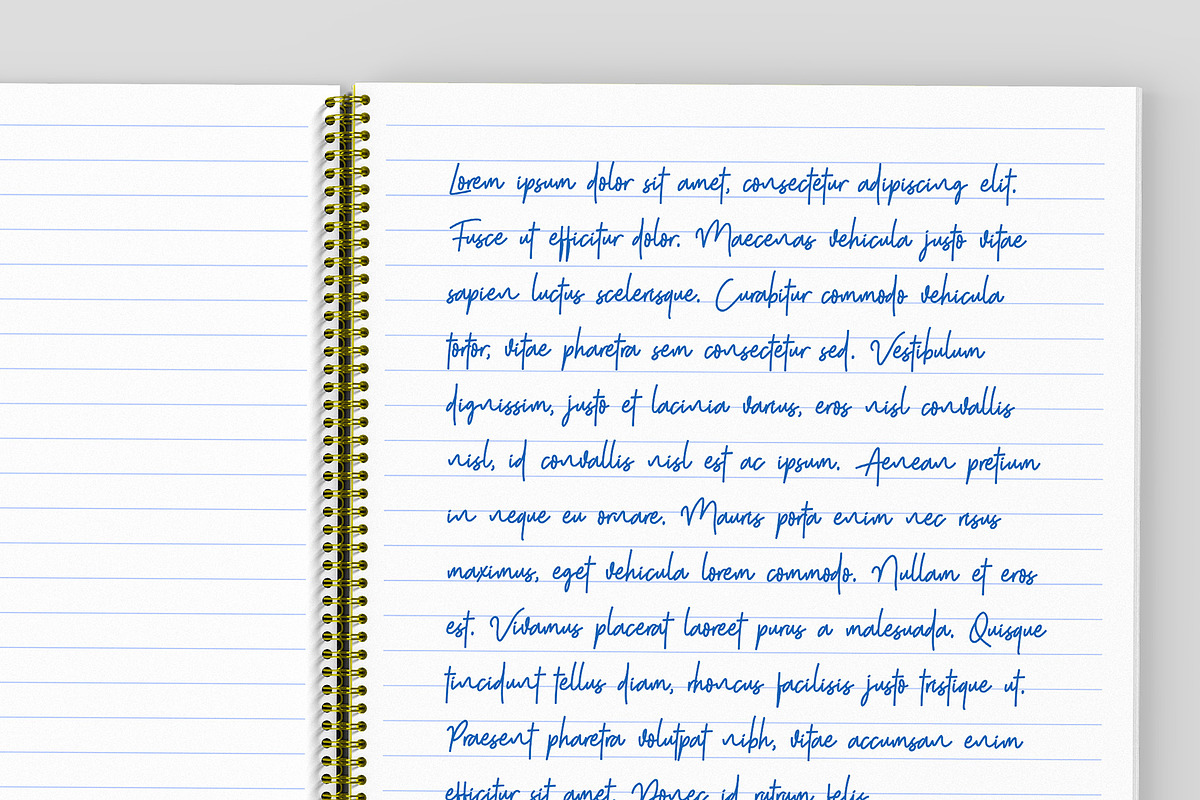 Lorem ipsum dolor sit amet, consectetur adipiscing elit.
Fusce ut efficitur dolor. Maecenas vehicula justo vitae
sapien luctus scelerisque. Curabitur commodo vehicula
tortor, vitae pharetra sem consectetur sed. Vestibulum
dignissim, justo et lacinia varius, eros nisl convallis
nisl, id convallis nisl est ac ipsum. Aenean pretium
in neque eu ornare. Mauris porta enim nec risus
maximus, eget vehicula lorem commodo. Nullam et eros
est. Vivamus placerat laoreet purus a malesuada. Quisque
tincidunt tellus diam, rhoncus facilisis justo tristique ut.
Praesent pharetra volutpat nibh, vitae accumsan enim
efficitur sit amet. Donec id rutrum felis